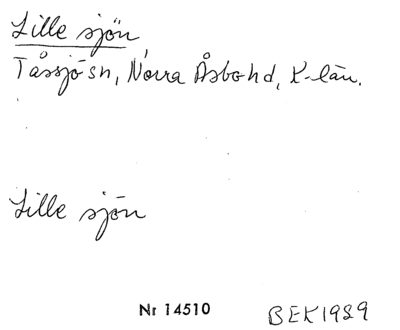 Lille sjön
Tåssjö sn, Norra Åsbo hd, K-län.
Lille sjön
Nr 14510
BEK1989